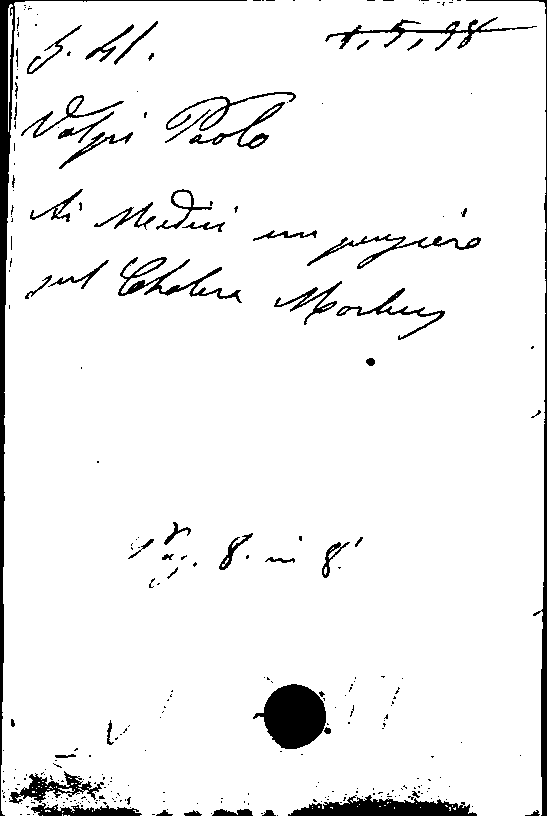 1, 5, 98
Volpi Paolo
Ai Medici un pensiero
sul Cholera Morbus
Pag. 8. in 8.